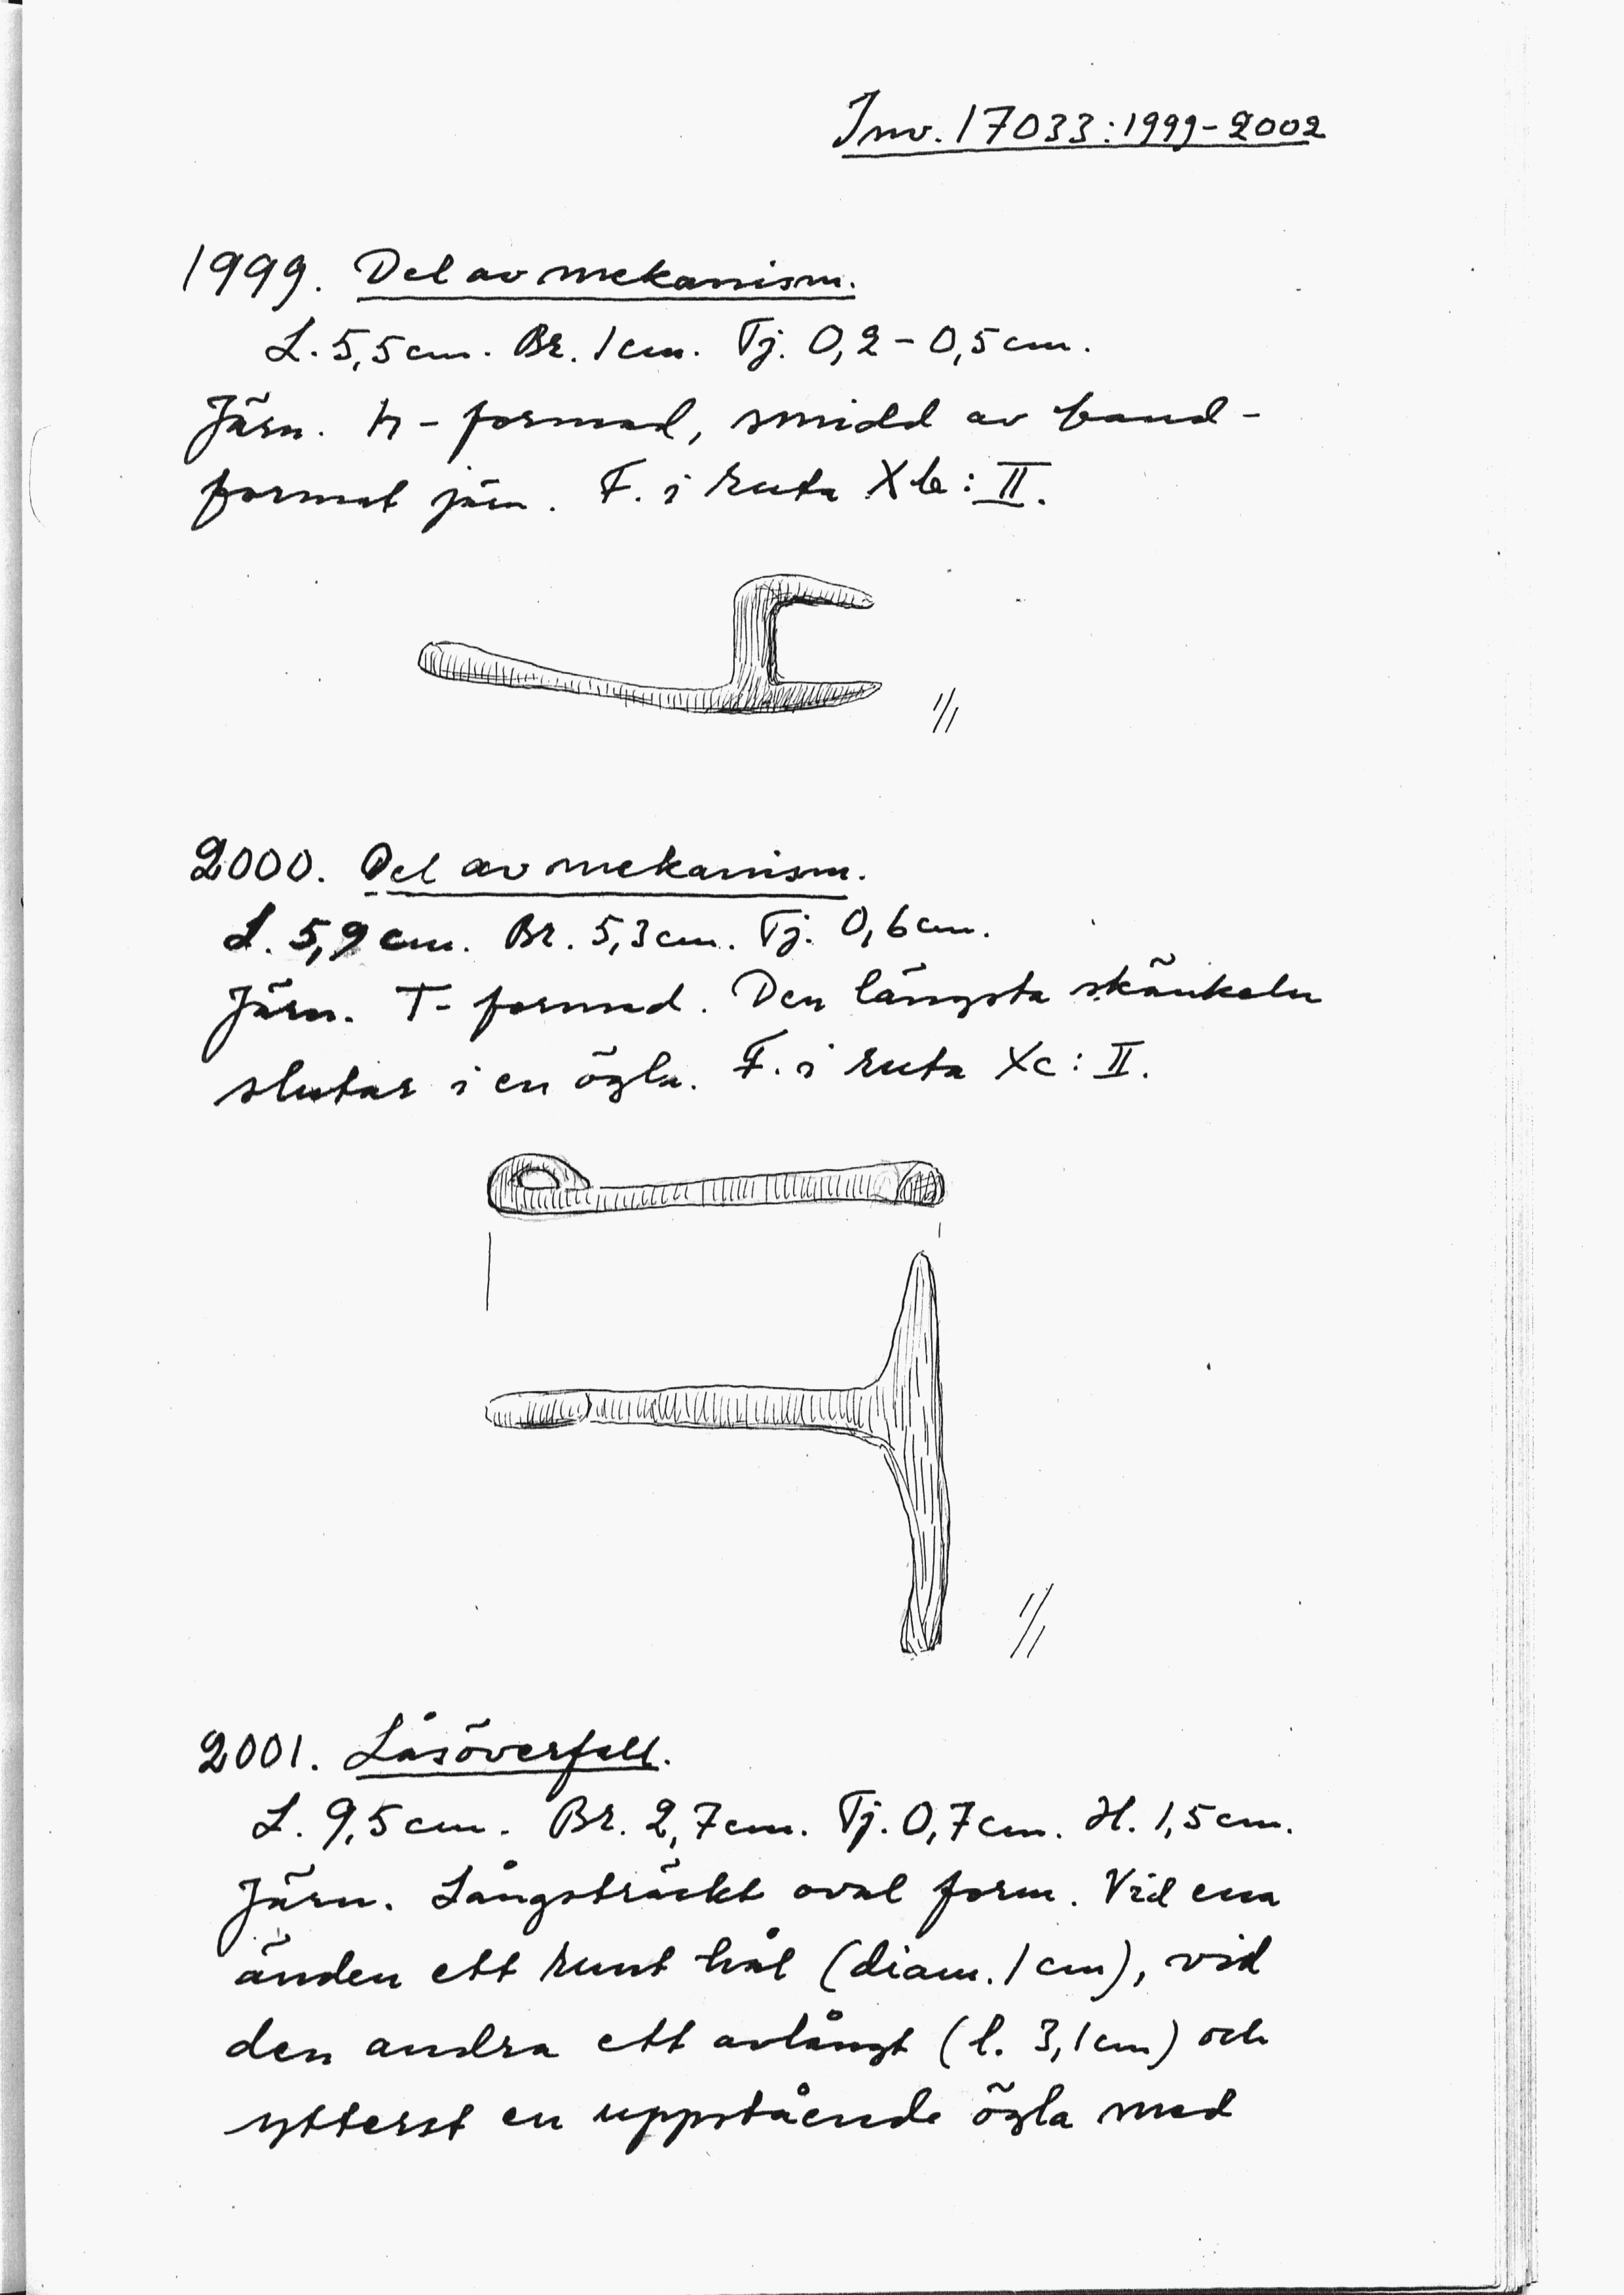 Inv. 17033:1999-2002
1999. Del av mekanism.
L. 5,5 cm. Br. 1 cm. Tj. 0,2-0,5 cm.
Järn. h-formad, smidd av band-
format järn. F. i ruta Xb:II.
1/1
2000. Del av mekanism.
L. 5,9 cm. Br. 5,3 cm. Tj. 0,6 cm.
Järn. T-formad. Den längsta skänkeln
slutar i en ögla. F. i ruta Xc:II.
1/1
2001. Låsöverfall.
L. 9,5 cm. Br. 2,7 cm. Tj. 0,7 cm. H. 1,5 cm.
Järn. Långsträckt oval form. Vid ena
änden ett runt hål (diam. 1 cm), vid
den andra ett avlångt (l. 3,1 cm) och
ytterst en uppstående ögla med